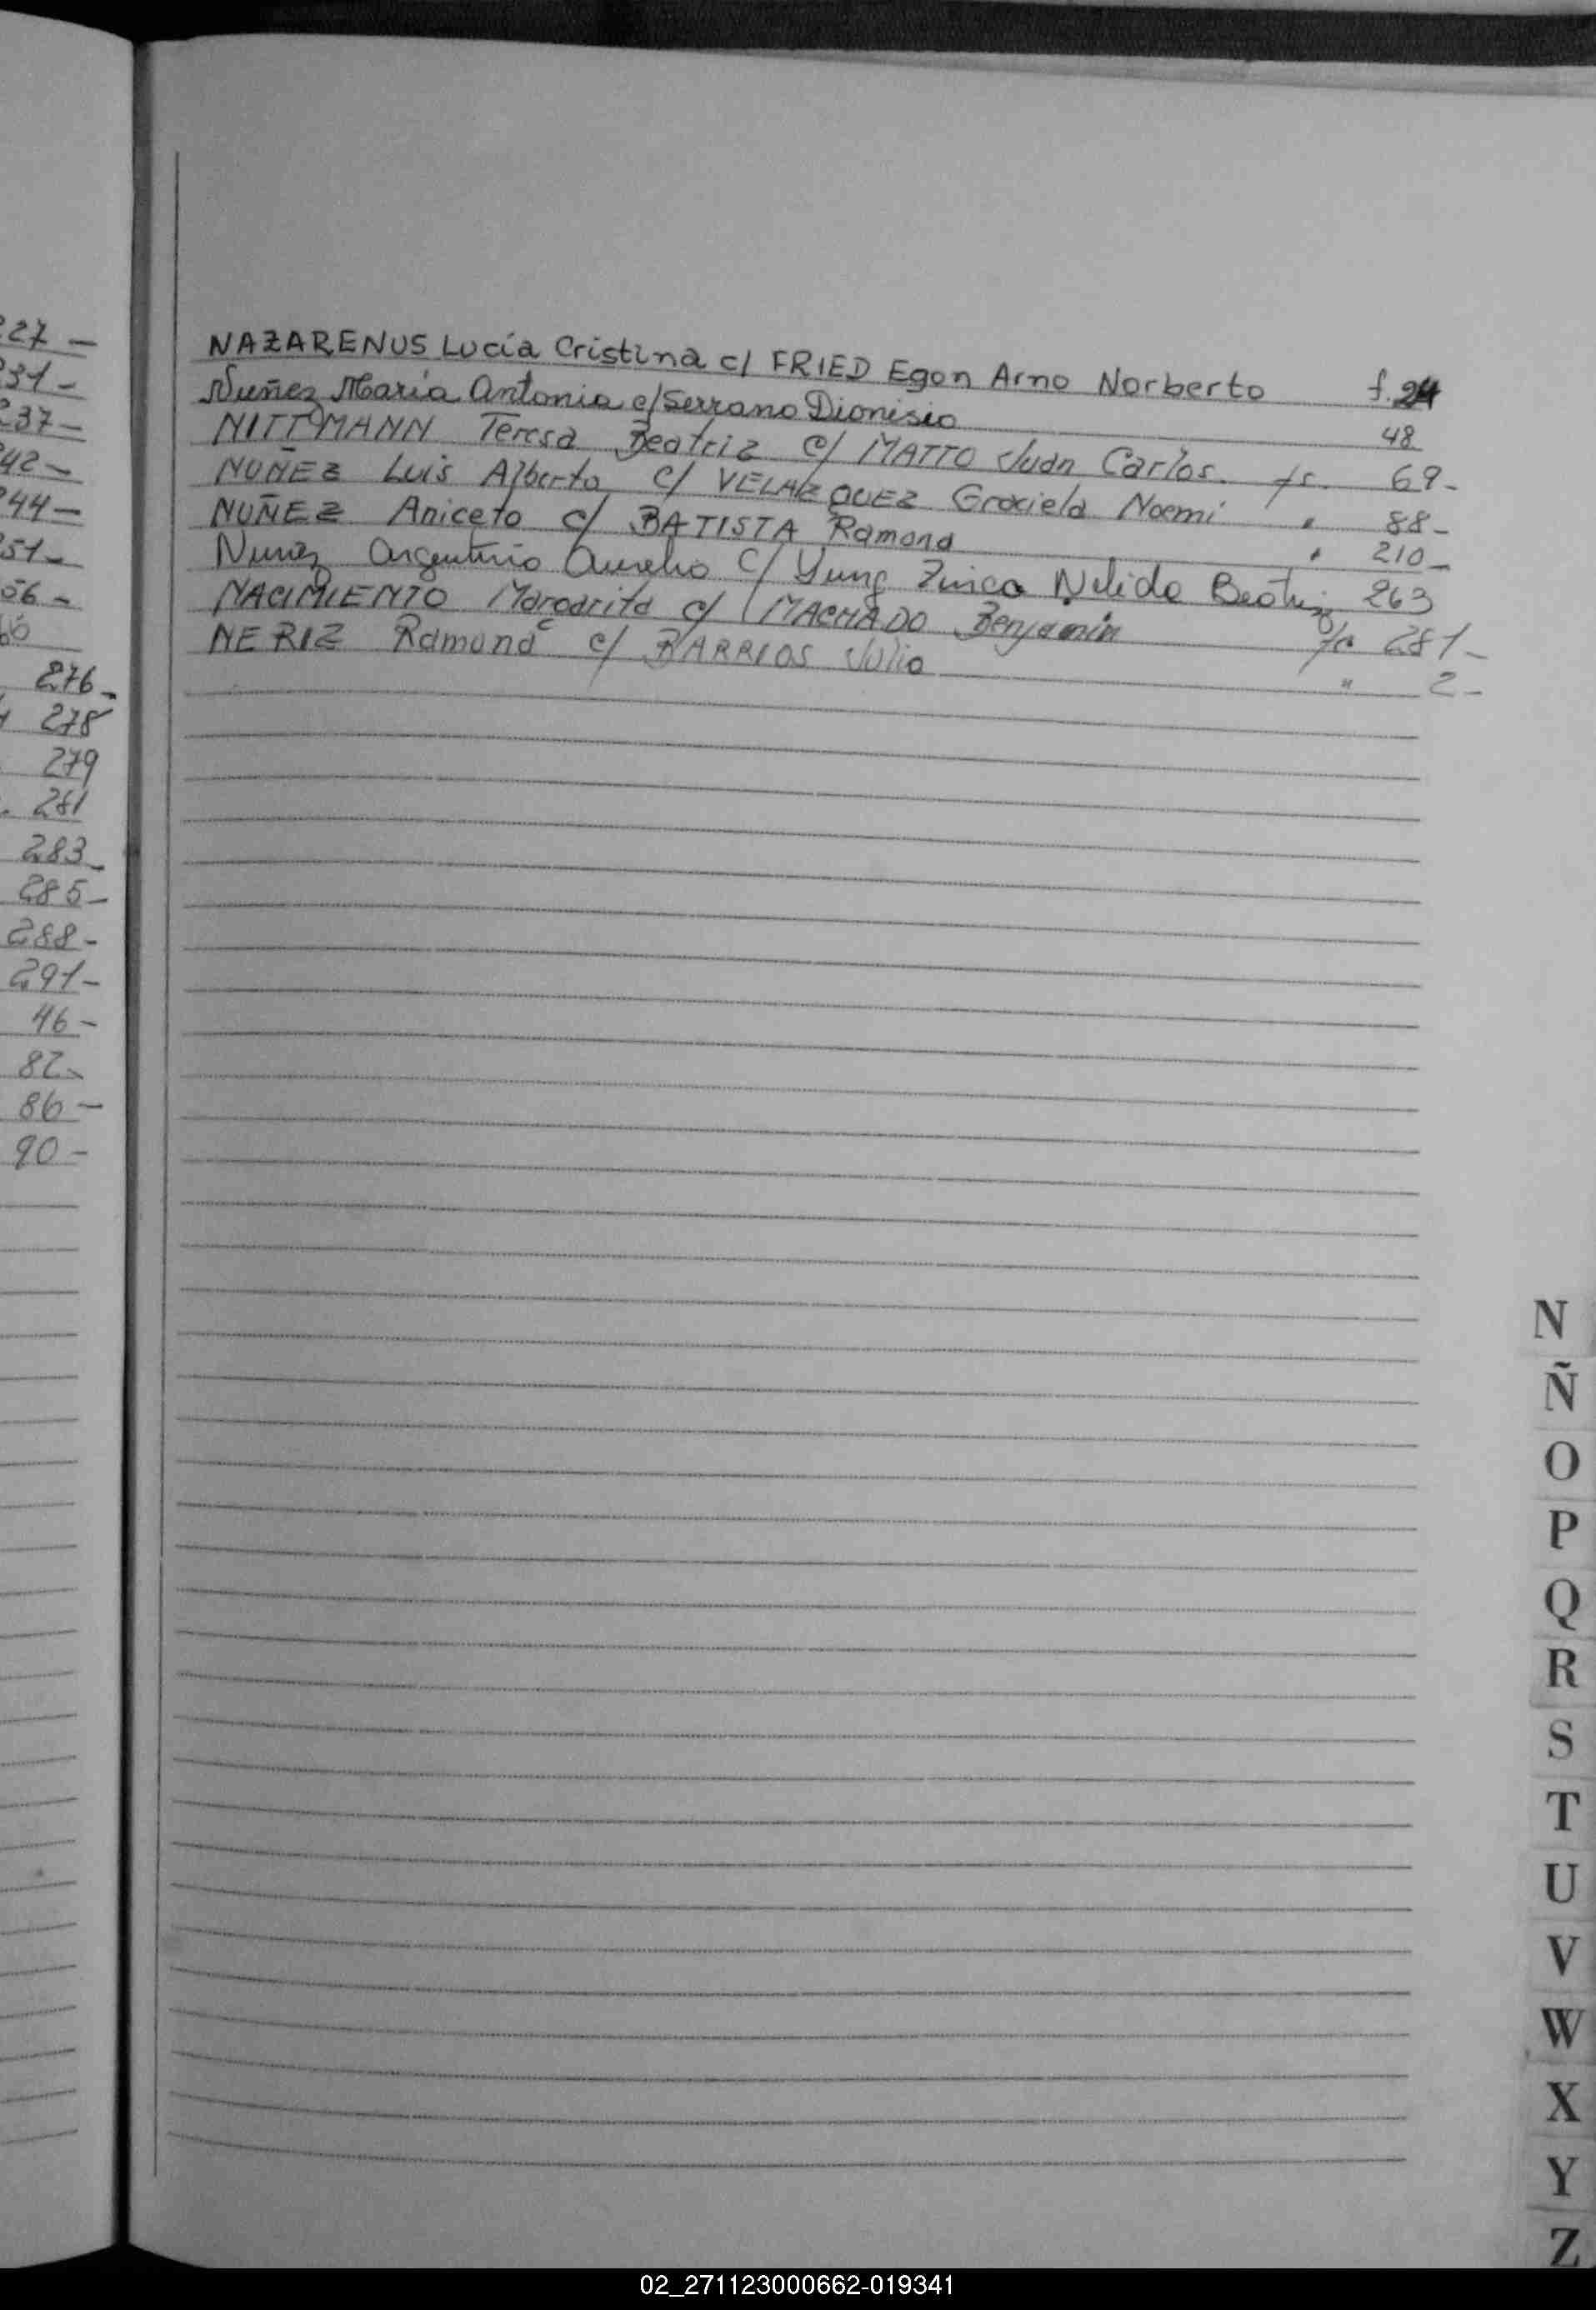 27 -
31 -
237 -
42 -
244 -
51 -
56 -
276 -
278
279
281
283 -
285 -
288 -
291 -
46 -
82 -
86 -
90 -
NAZARENUS Lucía Cristina c/ FRIED Egon Arno Norberto f. 24
Nuñez María Antonia c/ Serrano Dionisio 48
NITTMANN Teresa Beatriz c/ MATTO Juan Carlos. fs. 69 -
NUÑEZ Luis Alberto c/ VELAZQUEZ Graciela Noemi " 88 -
NUÑEZ Aniceto c/ BATISTA Ramona " 210 -
Nuñez Argentino Aurelio c/ Yung Zurica Nelida Beatriz 263
NACIMIENTO Margarita c/ MACHADO Benjamin fs 281 -
NERIZ Ramona c/ BARRIOS Julio " 2 -
N
Ñ
O
P
Q
R
S
T
U
V
W
X
Y
Z
02_271123000662-019341